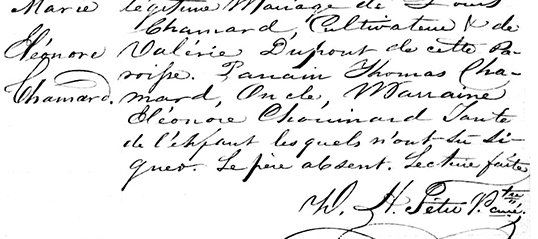 Marie légitime Mariage de Louis
Chamard, Cultivateur & de
Eléonore Valérie Dupont de cette Pa-
roisse. Parrain Thomas Cha-
Chamard. mard, Oncle, Marraine
Eléonore Chouinard Tante
de l'enfant lesquels n'ont su si-
gner. Le père absent. Lecture faite
W. H. Ptre Curé.